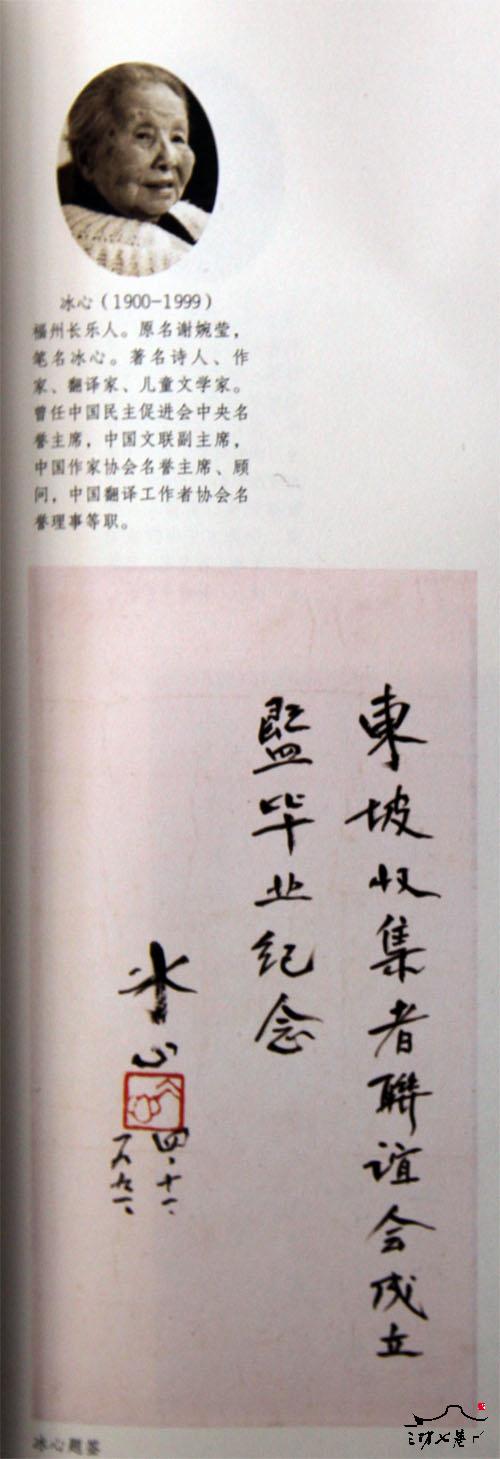 冰心（1900-1999）
福州长乐人。原名谢婉莹，
笔名冰心。著名诗人、作
家、翻译家、儿童文学家。
曾任中国民主促进会中央名
誉主席，中国文联副主席，
中国作家协会名誉主席、顾
问，中国翻译工作者协会名
誉理事等职。
東坡收集者聯誼会成立
暨毕业纪念
冰心
四、十一、
一九九一、
冰心题签
三坊七巷